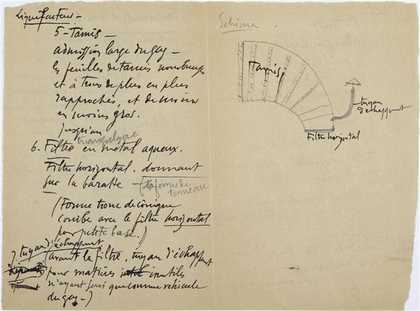 Liquéfacteur –
5 – Tamis –
admission large du gaz –
les feuilles de tamis nombreux
et à trous de plus en plus
rapprochés, et de moins
en moins gros.
jusqu'au
6. Filtre en métal aqueux.
Filtre horizontal. donnant
sur la baratte –
(Forme tronc de cônique
courbe avec le filtre horizontal
pour petite base.)
7 tuyau d'échappmt
(avant le filtre, tuyau d'échappmt
pour matières inutiles
n'ayant servi que comme véhicule
du gaz –)
Schéma.
Tamis
tuyau
d'échappemt
Filtre horizontal